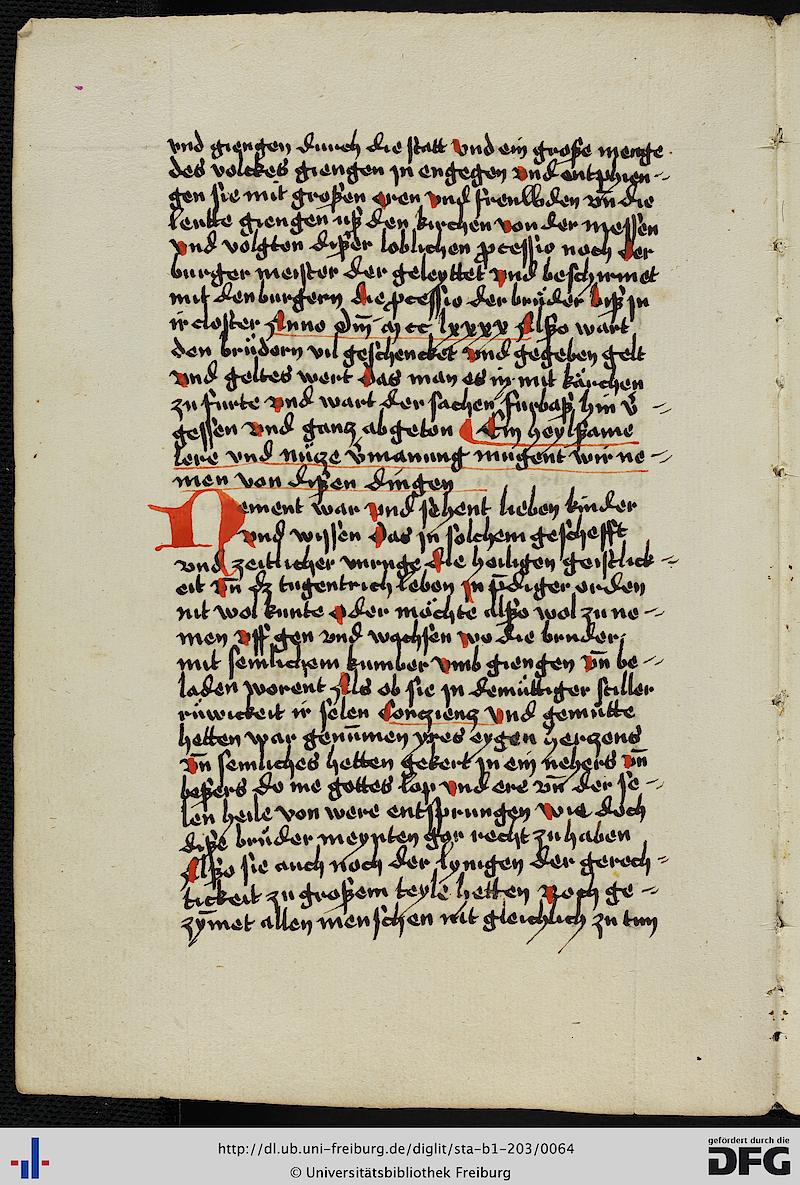 vnd giengen durch die statt vnd ein große menge
des volckes giengen jn engegen vnd entphien-
gen sie mit großen eren vnd freuwden vn̄ die
leutte giengen uß den kirchen von der messen
vnd volgten dißer loblichen ꝓcessio noch der
burger meister der geleyttet vnd beschirmet
mit den burgern die ꝓcessio der brůder biß jn
ir closter Anno dn̄i m cc lxxxx Alßo wart
den brůdern vil geschencket vnd gegeben gelt
vnd geltes wert das man es in mit kärchen
zu furte vnd wart der sachen furbaß hin v̄-
gessen vnd gancz abgeton Ein heylßame
lere vnd nücze v̄manung mugent wir ne-
men von dißen dingen
Nement war vnd sehent lieben kinder
vnd wissen das jn solchem geschefft
vnd zeitlicher vnruge die heiligen geistlick-
eit vn̄ dz tugentrich leben jn p̄diger orden
nit wol kunte oder möchte alßo wol zu ne-
men vff gen vnd wachsen wo die bruder
mit semlichem kumber vmb giengen vn̄ be-
laden worent Als ob sie jn demůttiger stiller
růwickeit ir selen Concziencz vnd gemůtte
hetten war genūmen yres eygen herczens
vn̄ semliches hetten gekert jn ein nehers vn̄
beßers do me gottes lop vnd ere vn̄ der se-
len heile von were entsprungen wie doch
diße brůder meynten gor recht zu haben
Alßo sie auch noch der lynigen der gerech-
tickeit zu großem teyle hetten noch ge-
zȳmet allen menschen nit gleichlich zu tun
http://dl.ub.uni-freiburg.de/diglit/sta-b1-203/0064
© Universitätsbibliothek Freiburg
gefördert durch die
DFG